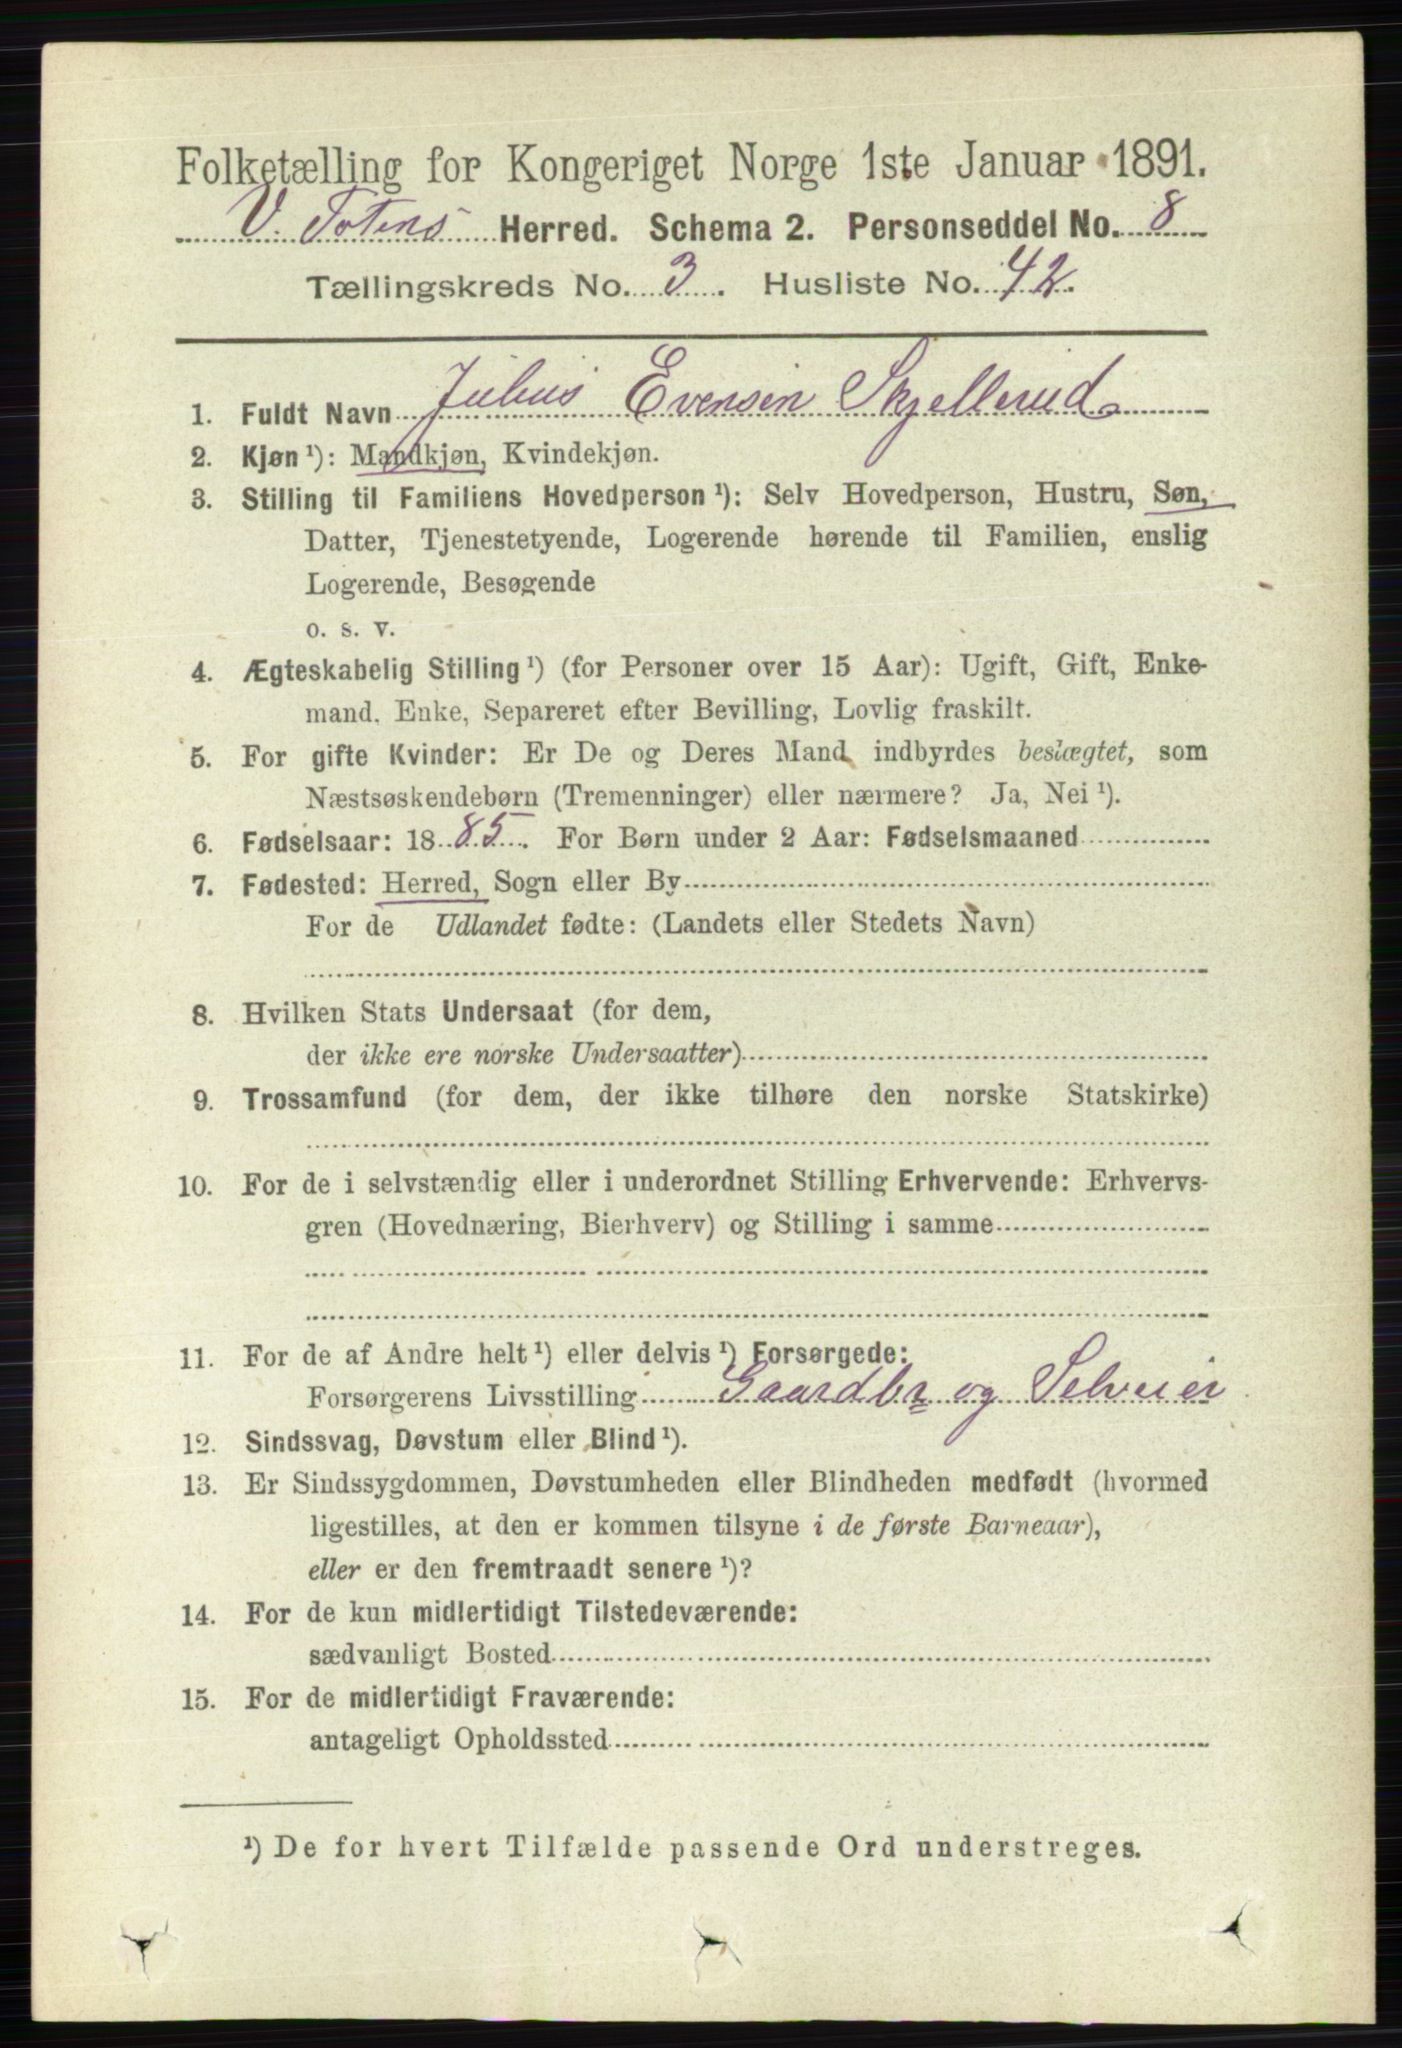 Folketælling for Kongeriget Norge 1ste Januar 1891.
V. Totens Herred. Schema 2. Personseddel No. 8
Tællingskreds No. 3. Husliste No. 42.
1. Fuldt Navn Julius Evensen Skjellerud
2. Kjøn ¹): Mandkjøn, Kvindekjøn.
3. Stilling til Familiens Hovedperson ¹): Selv Hovedperson, Hustru, Søn,
Datter, Tjenestetyende, Logerende hørende til Familien, enslig
Logerende, Besøgende
o. s. v.
4. Ægteskabelig Stilling ¹) (for Personer over 15 Aar): Ugift, Gift, Enke-
mand, Enke, Separeret efter Bevilling, Lovlig fraskilt.
5. For gifte Kvinder: Er De og Deres Mand indbyrdes beslægtet, som
Næstsøskendebørn (Tremenninger) eller nærmere? Ja, Nei ¹).
6. Fødselsaar: 1885. For Børn under 2 Aar: Fødselsmaaned
7. Fødested: Herred, Sogn eller By
For de Udlandet fødte: (Landets eller Stedets Navn)
8. Hvilken Stats Undersaat (for dem,
der ikke ere norske Undersaatter)
9. Trossamfund (for dem, der ikke tilhøre den norske Statskirke)
10. For de i selvstændig eller i underordnet Stilling Erhvervende: Erhvervs-
gren (Hovednæring, Bierhverv) og Stilling i samme
11. For de af Andre helt ¹) eller delvis ¹) Forsørgede:
Forsørgerens Livsstilling Gaardbr og Selveier
12. Sindssvag, Døvstum eller Blind ¹).
13. Er Sindssygdommen, Døvstumheden eller Blindheden medfødt (hvormed
ligestilles, at den er kommen tilsyne i de første Barneaar),
eller er den fremtraadt senere ¹)?
14. For de kun midlertidigt Tilstedeværende:
sædvanligt Bosted
15. For de midlertidigt Fraværende:
antageligt Opholdssted
¹) De for hvert Tilfælde passende Ord understreges.